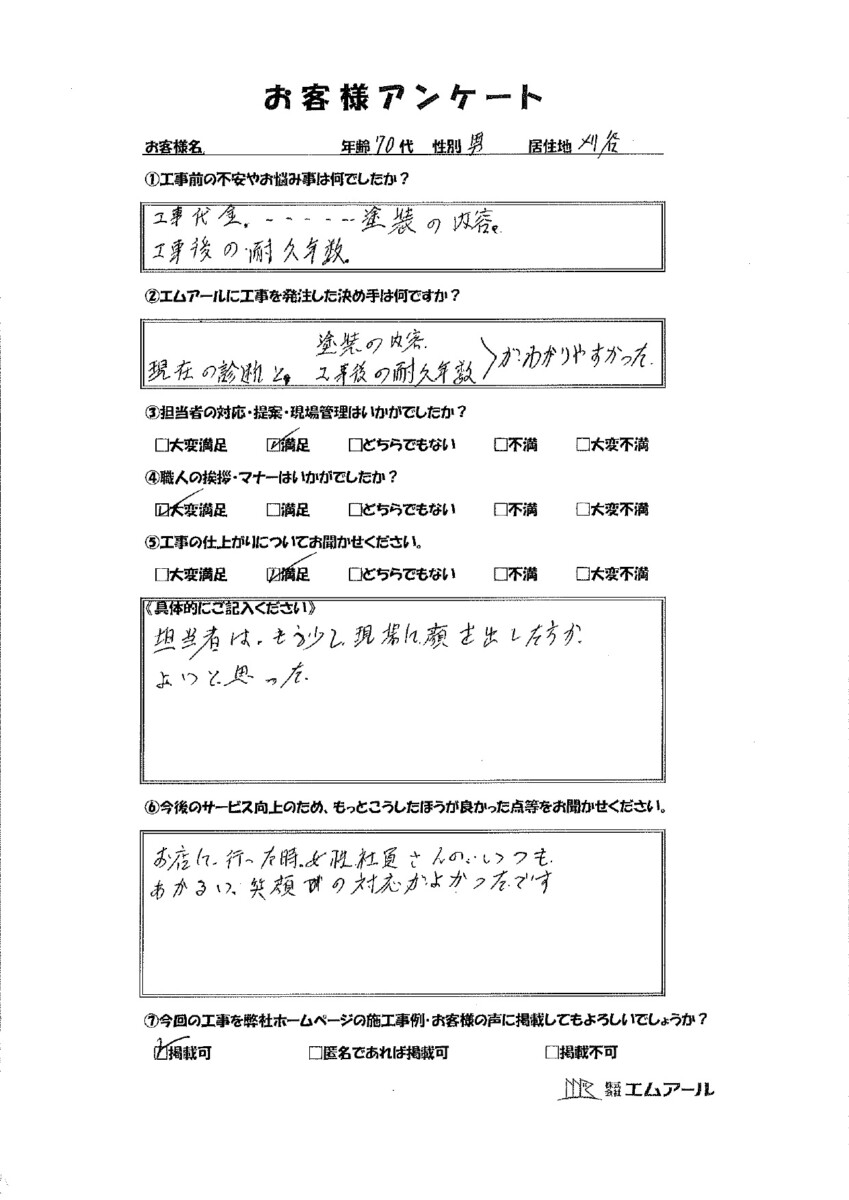 お客様アンケート
お客様名 年齢 70代 性別 男 居住地 刈谷
①工事前の不安やお悩み事は何でしたか？
工事代金。- - - - - -塗装の内容。
工事後の耐久年数。
②エムアールに工事を発注した決め手は何ですか？
塗装の内容
現在の診断と、工事後の耐久年数 〉がわかりやすかった
③担当者の対応・提案・現場管理はいかがでしたか？
□大変満足 ☑満足 □どちらでもない □不満 □大変不満
④職人の挨拶・マナーはいかがでしたか？
☑大変満足 □満足 □どちらでもない □不満 □大変不満
⑤工事の仕上がりについてお聞かせください。
□大変満足 ☑満足 □どちらでもない □不満 □大変不満
《具体的にご記入ください》
担当者は、もう少し現場に顔を出した方が
よいと思った
⑥今後のサービス向上のため、もっとこうしたほうが良かった点等をお聞かせください。
お店に行った時、女性社員さんのいつも
あかるい、笑顔での対応がよかったです
⑦今回の工事を弊社ホームページの施工事例・お客様の声に掲載してもよろしいでしょうか？
☑掲載可 □匿名であれば掲載可 □掲載不可
MR 株式会社エムアール